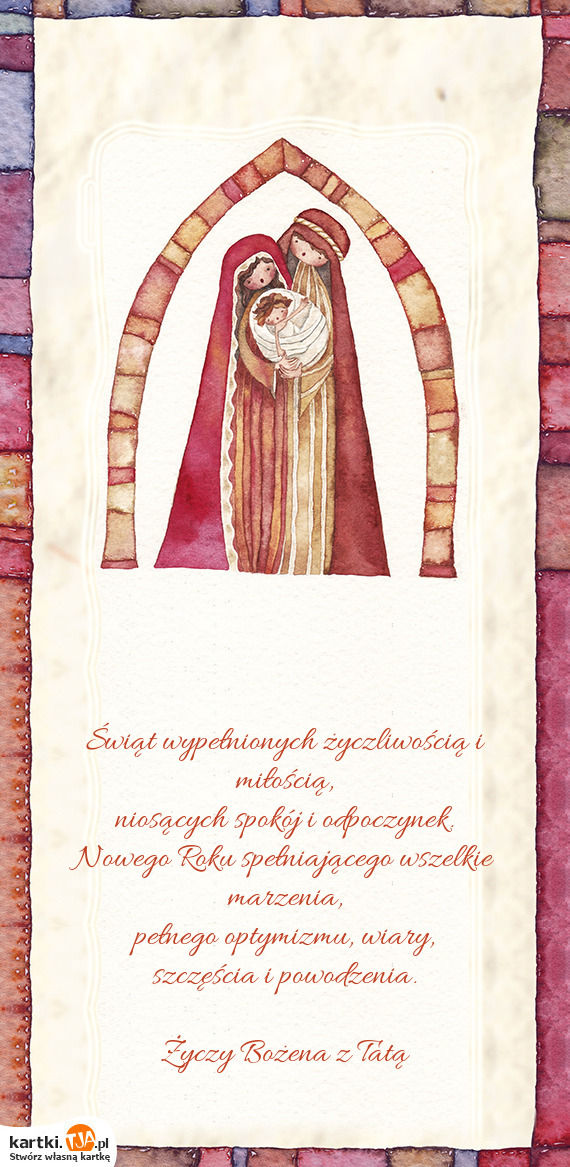 Świąt wypełnionych życzliwością i
miłością,
niosących spokój i odpoczynek.
Nowego Roku spełniającego wszelkie
marzenia,
pełnego optymizmu, wiary,
szczęścia i powodzenia.
Życzy Bożena z Tatą
kartki.TJA.pl
Stwórz własną kartkę